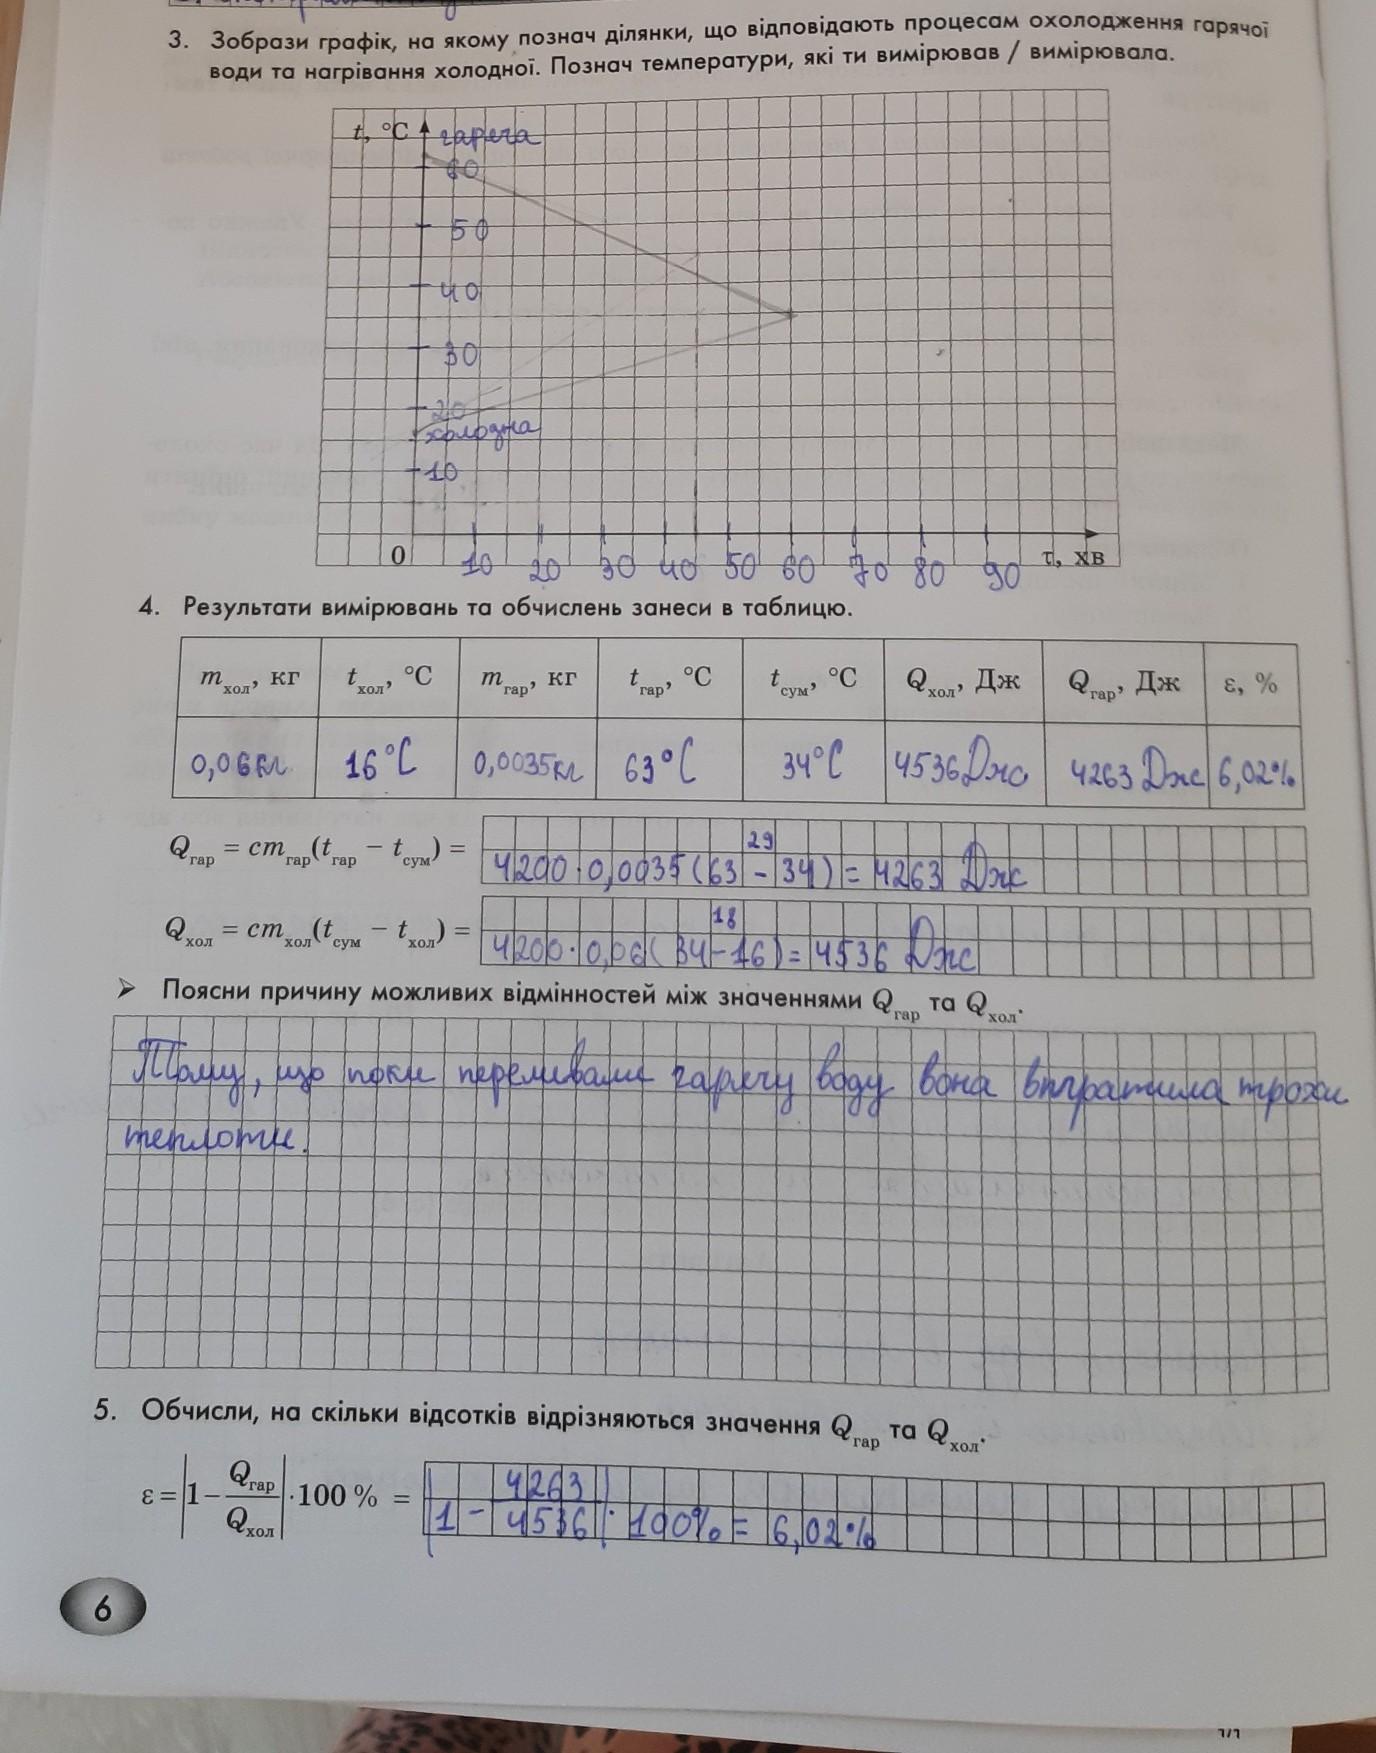 3. Зобрази графік, на якому познач ділянки, що відповідають процесам охолодження гарячої
води та нагрівання холодної. Познач температури, які ти вимірював / вимірювала.
t, °C гаряча
60
50
40
30
20
холодна
10
0 10 20 30 40 50 60 70 80 90 τ, хв
4. Результати вимірювань та обчислень занеси в таблицю.
mхол, кг tхол, °C mгар, кг tгар, °C tсум, °C Qхол, Дж Qгар, Дж ε, %
0,06кг 16°C 0,0035кг 63°C 34°C 4536Дж 4263Дж 6,02%
29
Qгар = cmгар(tгар − tсум) = 4200·0,0035(63−34)=4263 Дж
18
Qхол = cmхол(tсум − tхол) = 4200·0,06(34−16)=4536 Дж
➤ Поясни причину можливих відмінностей між значеннями Qгар та Qхол.
Тому, що поки переливали гарячу воду вона втратила трохи
теплоти.
5. Обчисли, на скільки відсотків відрізняються значення Qгар та Qхол.
ε = |1 − Qгар/Qхол| · 100 % = |1 − 4263/4536| · 100% = 6,02%
6